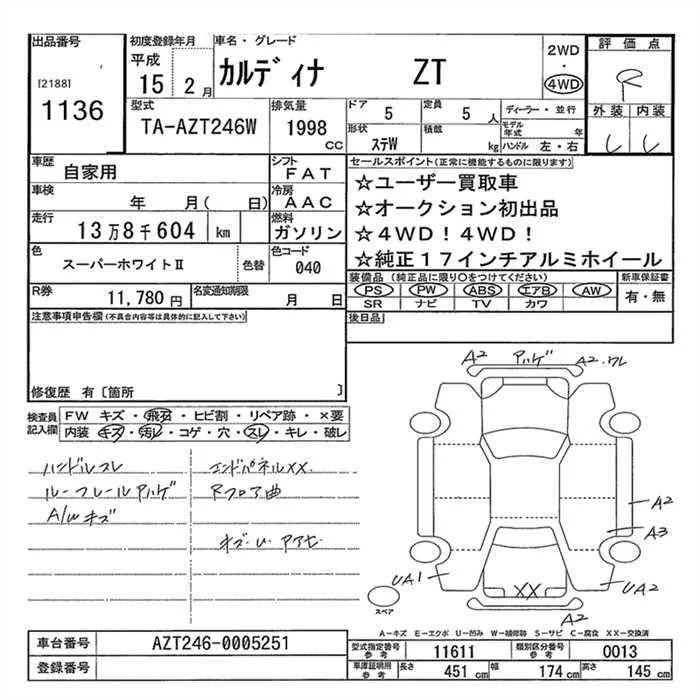 出品番号
[2188]
1136
初度登録年月
平成
15 2月
車名・グレード
カルディナ ZT
2WD
・
4WD
評価点
R
外装 内装
型式
TA-AZT246W
排気量
1998
CC
ドア 5
定員 5 人
形状 ステW
積載 kg
ディーラー・並行
モデル年式 年
ハンドル 左・右
車歴 自家用
シフト FAT
車検 年 月( 日)
冷房 AAC
走行 13万8千604 km
燃料 ガソリン
色 スーパーホワイトⅡ
色替
色コード 040
R券 11,780円
名変通知期限 月 日
セールスポイント(正常に機能するものに限ります)
☆ユーザー買取車
☆オークション初出品
☆4WD!4WD!
☆純正17インチアルミホイール
装備品 (純正品に限り○をつけてください)
新車保証書
PS PW ABS エアB AW
有・無
SR ナビ TV カワ
後日品
注意事項申告欄(不具合内容等は具体的に記入して下さい)
修復歴 有[箇所 ]
検査員記入欄
FW キズ・飛石・ヒビ割・リペア跡・×要
内装 キズ・汚レ・コゲ・穴・スレ・キレ・破レ
ハンドルスレ
ルーフレールアハゲ
A/wキズ
エンドパネルXX.
Rフロア曲
キズ・U・アアセ
A2 アハゲ A2・ワレ
A2
A3
UA1
XX
UA2
A2
スペア
A−キズ E−エクボ U−凹み W−補修跡 S−サビ C−腐食 XX−交換済
車台番号 AZT246-0005251
登録番号
型式指定番号参考 11611
類別区分番号参考 0013
車庫証明用参考
長さ 451 cm
幅 174 cm
高さ 145 cm